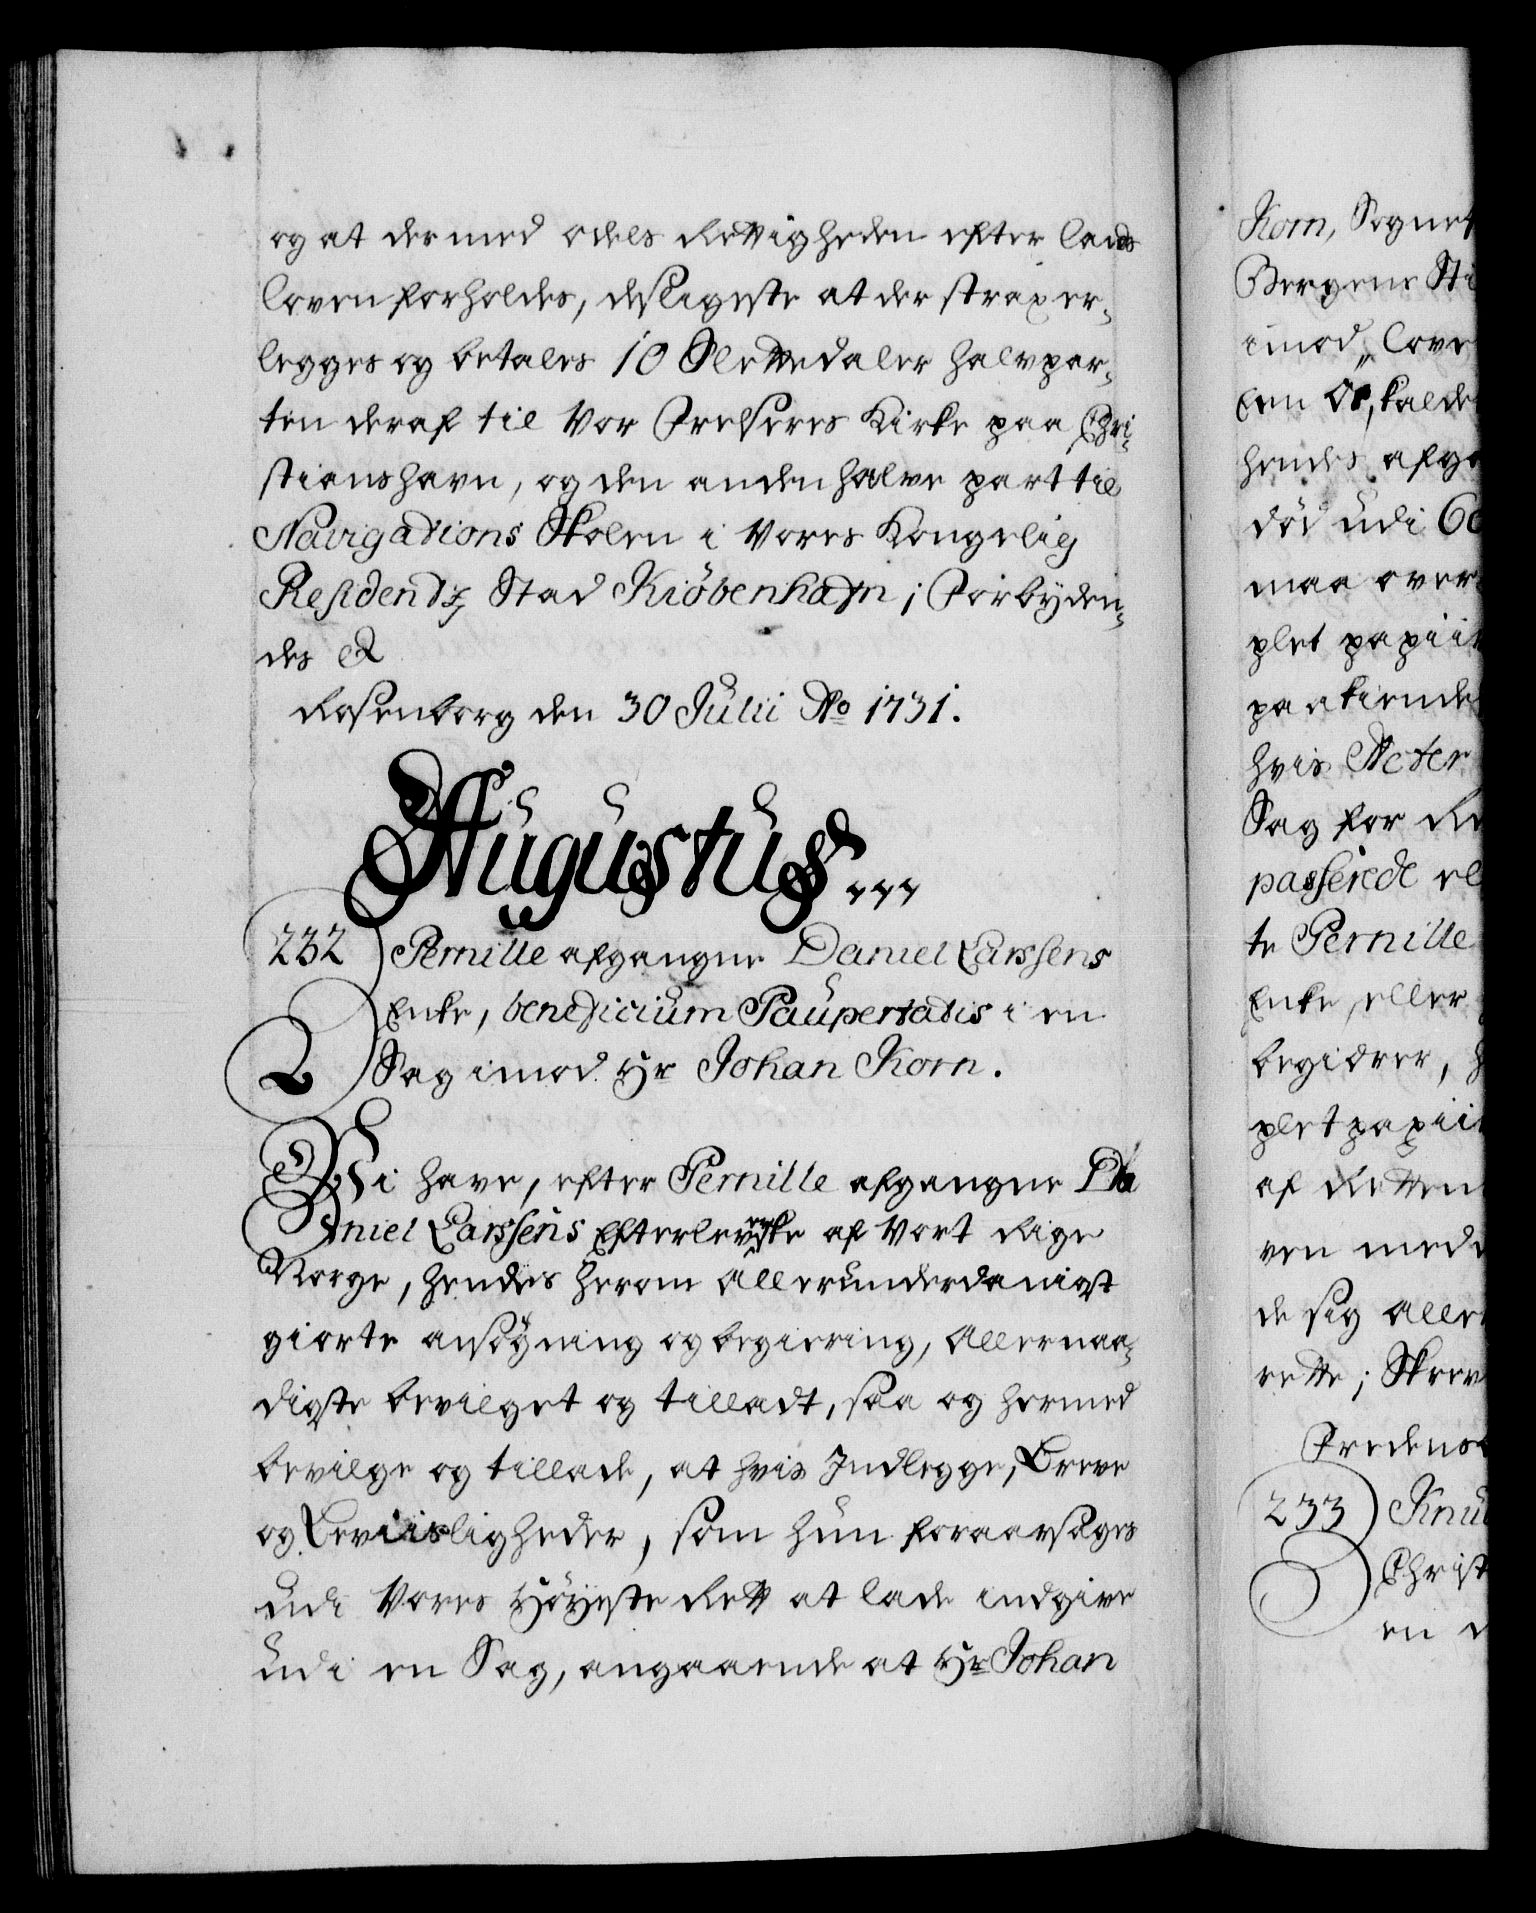 og at dermed odels Rettigheden efter lands
loven forholdes, desligeste at der strax er-
legges og betales 10 Slettedaler halvpar-
ten deraf til Vor Frelseres Kirke paa Chri-
stianshavn, og den anden halve part til
Navigations Skolen i Vores Kongelig
Residentz Stad Kiöbenhafn; Forbyden-
des &
Rosenborg den 30 Julii Ao 1731.
Augustus
232 Pernille afgangne Daniel Larssens
Enke, beneficium Paupertatis i en
Sag imod Hr Johan Korn.
Vi have, efter Pernille afgangne Da
niel Larssens Efterleverske af Vort Rige
Norge, hendes herom allerunderdanigst
giorte ansøgning og begiering, allernaa-
digste bevilget og tilladt, saa og hermed
bevilge og tillade, at hvis Indlegge, Breve
og Beviisligheder, som hun foraarsages
udi Vores Höyeste Rett at lade indgive
udi en Sag, angaaende at Hr Johan
Korn, Sognet
Bergens Sti
imod love
hendes afga
død udi
maa over
plet papiir
paakiende
hvis Acter
Sag for
passerede
te Pernille
Enke, eller
begiærer,
plet papiir
af Retten
ven med
de sig aller
rette; Skrev
Fredens
233 Knu
Christ
en